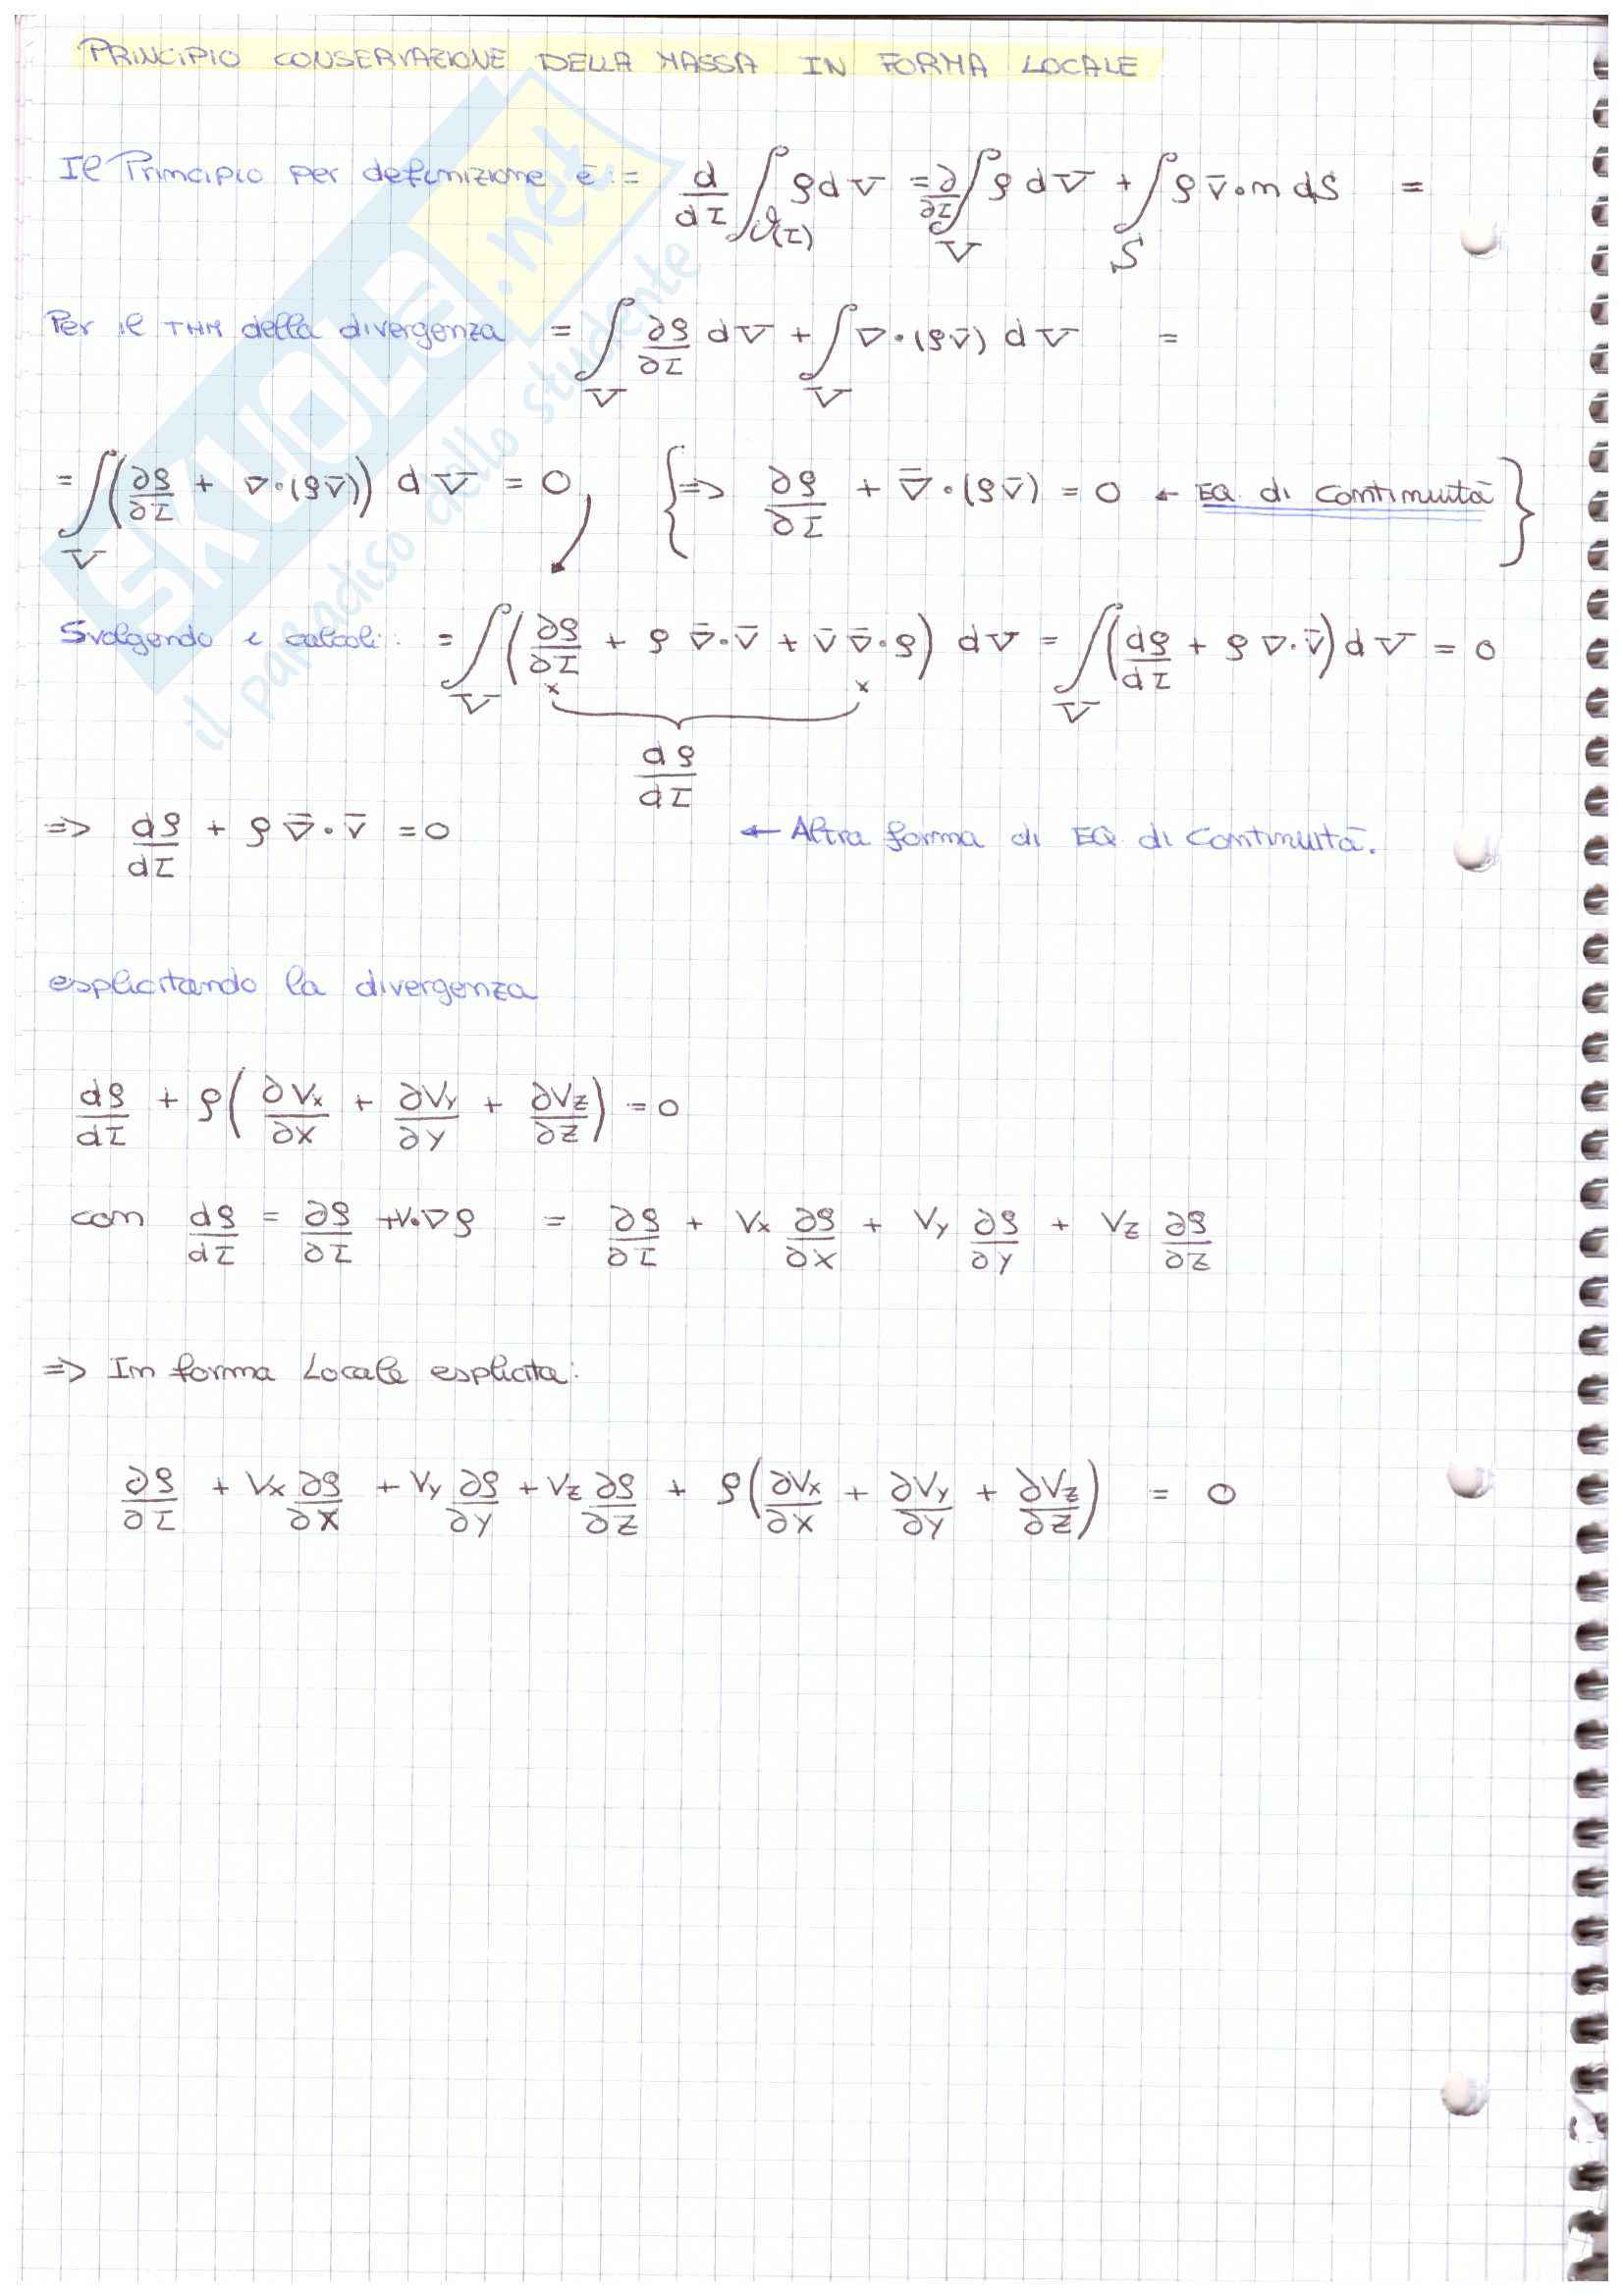 PRINCIPIO CONSERVAZIONE DELLA MASSA IN FORMA LOCALE
Il Principio per definizione è := d/dτ ∫_{𝒱(τ)} ρ dV = ∂/∂τ ∫_V ρ dV + ∫_S ρ v̄·n dS =
Per il THM della divergenza = ∫_V ∂ρ/∂τ dV + ∫_V ∇·(ρv̄) dV =
= ∫_V (∂ρ/∂τ + ∇·(ρv̄)) dV = 0, { => ∂ρ/∂τ + ∇̄·(ρv̄) = 0 ← EQ. di Continuità }
Svolgendo i calcoli: = ∫_V (∂ρ/∂τ + ρ ∇̄·v̄ + v̄ ∇̄·ρ) dV = ∫_V (dρ/dτ + ρ ∇·v̄) dV = 0
x x
dρ/dτ
=> dρ/dτ + ρ ∇̄·v̄ = 0 ← Altra forma di EQ di Continuità.
esplicitando la divergenza
dρ/dτ + ρ(∂Vx/∂x + ∂Vy/∂y + ∂Vz/∂z) = 0
con dρ/dτ = ∂ρ/∂τ + v·∇ρ = ∂ρ/∂τ + Vx ∂ρ/∂x + Vy ∂ρ/∂y + Vz ∂ρ/∂z
=> In forma Locale esplicita:
∂ρ/∂τ + Vx ∂ρ/∂x + Vy ∂ρ/∂y + Vz ∂ρ/∂z + ρ(∂Vx/∂x + ∂Vy/∂y + ∂Vz/∂z) = 0
SKUOLA.net
il paradiso dello studente